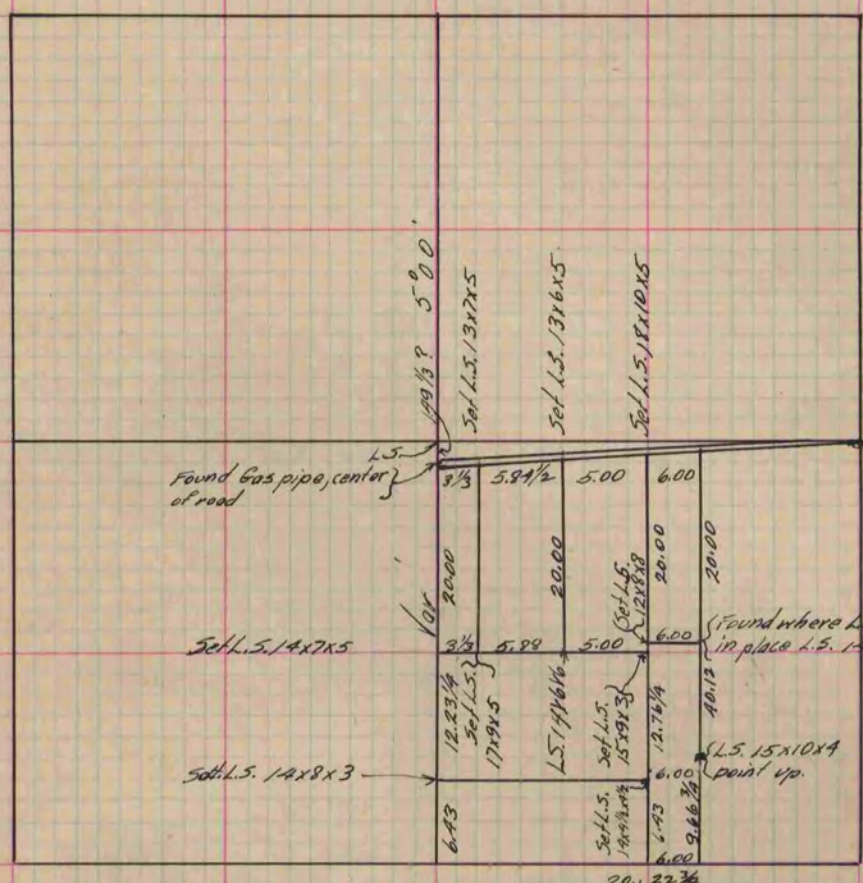 5°00'
Set L.S. 13x7x5
Set L.S. 13x6x5
Set L.S. 18x10x5
L.S.
Found Gas pipe, center
of road
3⅓ 5.84½ 5.00 6.00
Var
20.00
20.00
20.00
20.00
Set L.S.
12x8x8
Set L.S. 14x7x5
3⅓ 5.88 5.00 6.00
Found where L
in place L.S. 1
12.23¼
Set L.S.
17x9x5
L.S. 14x6x6
Set L.S.
15x9x3
12.76¼
40.12
L.S. 15x10x4
point up.
Sett L.S. 14x8x3
6.00
6.43
Set L.S.
6.43
9.66¾
6.00
22¾